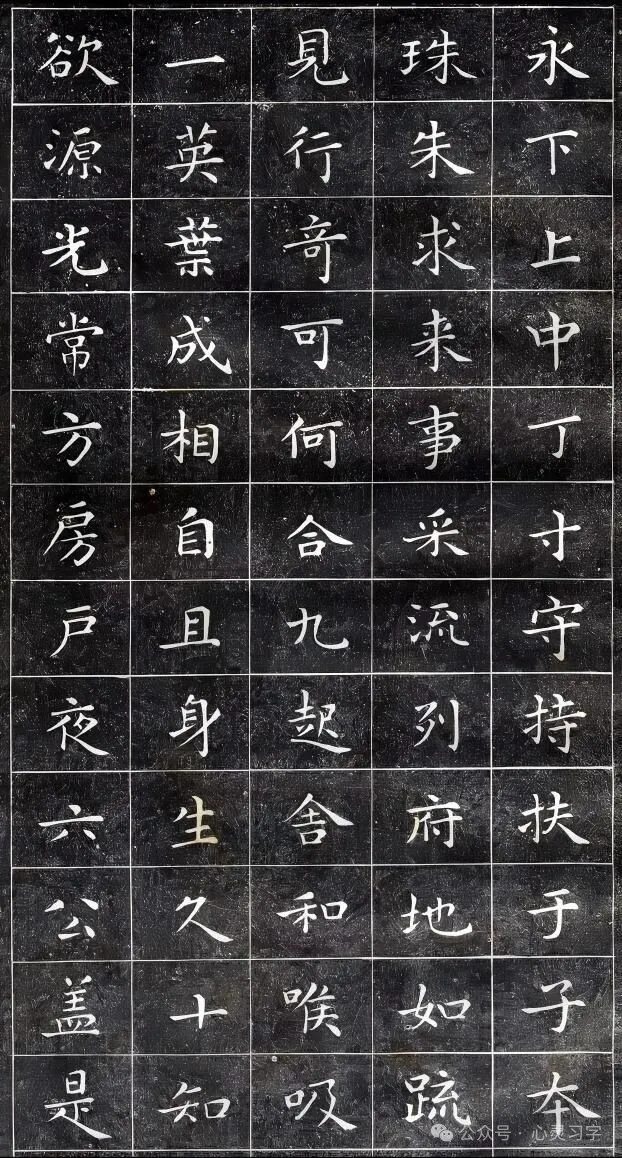 永下上中丁寸守持扶于子本
珠朱求来事采流列府地如疏
見行奇可何合九起舍和喉吸
一英葉成相自且身生久十知
欲源光常方房戶夜六公盖是
公众号·心灵习字